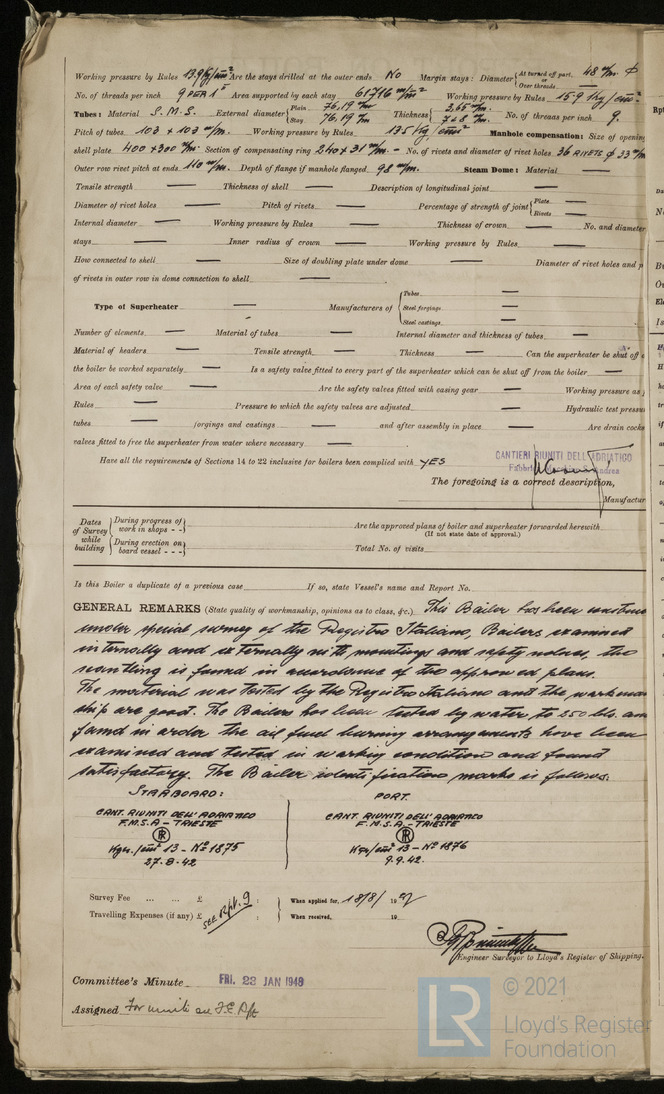 Working pressure by Rules 13.9 Kg/cm² Are the stays drilled at the outer ends No Margin stays: Diameter { At turned off part, 48 m/m. φ or Over threads
No. of threads per inch 9 PER 1" Area supported by each stay 61746 m/m² Working pressure by Rules 15.9 Kg/cm²
Tubes: Material S.M.S. External diameter { Plain 76,19 m/m Stay 76,19 m/m Thickness { 3,65 m/m. 7+8 m/m. No. of threads per inch 9.
Pitch of tubes 103 x 103 m/m. Working pressure by Rules 135 Kg/cm² Manhole compensation: Size of opening
shell plate 400 x 300 m/m. Section of compensating ring 240 x 31 m/m. No. of rivets and diameter of rivet holes 36 RIVETS φ 33 m/m
Outer row rivet pitch at ends 110 m/m. Depth of flange if manhole flanged 98 m/m. Steam Dome: Material —
Tensile strength — Thickness of shell — Description of longitudinal joint —
Diameter of rivet holes — Pitch of rivets — Percentage of strength of joint { Plate — Rivets —
Internal diameter — Working pressure by Rules — Thickness of crown — No. and diameter
stays — Inner radius of crown — Working pressure by Rules —
How connected to shell — Size of doubling plate under dome — Diameter of rivet holes and p
of rivets in outer row in dome connection to shell —
Type of Superheater — Manufacturers of { Tubes — Steel forgings — Steel castings —
Number of elements — Material of tubes — Internal diameter and thickness of tubes —
Material of headers — Tensile strength — Thickness — Can the superheater be shut off
the boiler be worked separately — Is a safety valve fitted to every part of the superheater which can be shut off from the boiler —
Area of each safety valve — Are the safety valves fitted with easing gear — Working pressure as
Rules — Pressure to which the safety valves are adjusted — Hydraulic test pressu
tubes — forgings and castings — and after assembly in place — Are drain cocks
valves fitted to free the superheater from water where necessary —
Have all the requirements of Sections 14 to 22 inclusive for boilers been complied with YES
CANTIERI RIUNITI DELL'ADRIATICO
The foregoing is a correct description,
Manufactur
Dates of Survey while building { During progress of work in shops - - During erection on board vessel - - -
Are the approved plans of boiler and superheater forwarded herewith
(If not state date of approval.)
Total No. of visits
Is this Boiler a duplicate of a previous case If so, state Vessel's name and Report No.
GENERAL REMARKS (State quality of workmanship, opinions as to class, &c.) This Boiler has been
under special survey of the Registro Italiano, Boilers examined
internally and externally with mountings and safety valves, the
scantling is found in accordance of the approved plans.
The material was tested by the Registro Italiano and the workman
ship are good. The Boilers has been tested by water to 250 lbs. and
found in order the oil fuel burning arrangements have been
examined and tested in working condition and found
satisfactory. The Boiler identification marks is follows:
STARBOARD:
CANT. RIUNITI DELL'ADRIATICO
F.M.S.A - TRIESTE
Kgs./cm² 13 - No 1875
27.8.42
PORT.
CANT. RIUNITI DELL'ADRIATICO
F.M.S.A - TRIESTE
Kgs/cm² 13 - No 1876
9.9.42.
Survey Fee ... ... £ : : When applied for, 18/8/ 19
Travelling Expenses (if any) £ : : When received, 19
See Rpt. 9
Engineer Surveyor to Lloyd's Register of Shipping.
Committee's Minute FRI. 23 JAN 1948
Assigned
LR
© 2021
Lloyd's Register
Foundation